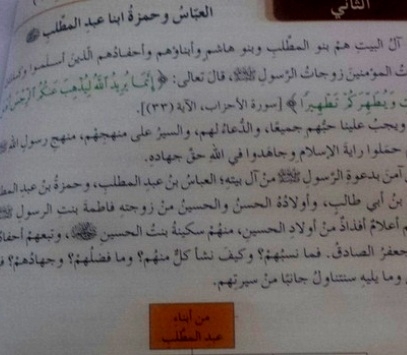 الثاني
العبّاسُ وحمزةُ ابنا عبدِ المطّلبِ
آلُ البيتِ همْ بنو المطّلبِ وبنو هاشمٍ وأبناؤهم وأحفادُهم الّذينَ أسلموا
المؤمنينَ زوجاتُ الرّسولِ ﷺ، قالَ تعالى: ﴿إِنَّمَا يُرِيدُ اللَّهُ لِيُذْهِبَ عَنكُمُ الرِّجْسَ
وَيُطَهِّرَكُمْ تَطْهِيرًا﴾ [سورة الأحزاب، الآية (٣٣)].
ويجبُ علينا حبُّهم جميعًا، والدُّعاءُ لهم، والسيرُ على منهجِهم، منهجِ رسولِ اللهِ
حملوا رايةَ الإسلامِ وجاهَدوا في اللهِ حقَّ جهادِهِ.
آمنَ بدعوةِ الرّسولِ ﷺ منْ آلِ بيتِهِ؛ العباسُ بنُ عبدِ المطلبِ، وحمزةُ بنُ عبدِ
بنُ أبي طالبٍ، وأولادُهُ الحسنُ والحسينُ منْ زوجتِهِ فاطمةَ بنتِ الرسولِ
أعلامٌ أفذاذٌ منْ أولادِ الحسينِ، منهُمْ سكينةُ بنتُ الحسينِ، وتبعهمْ
جعفرُ الصادقُ. فما نسبُهُمْ؟ وكيفَ نشأَ كلٌّ منهُمْ؟ وما فضلُهمْ؟ وجهادُهمْ؟
وما يليهِ سنتناولُ جانبًا منْ سيرتِهم.
من أبناء
عبد المطّلب